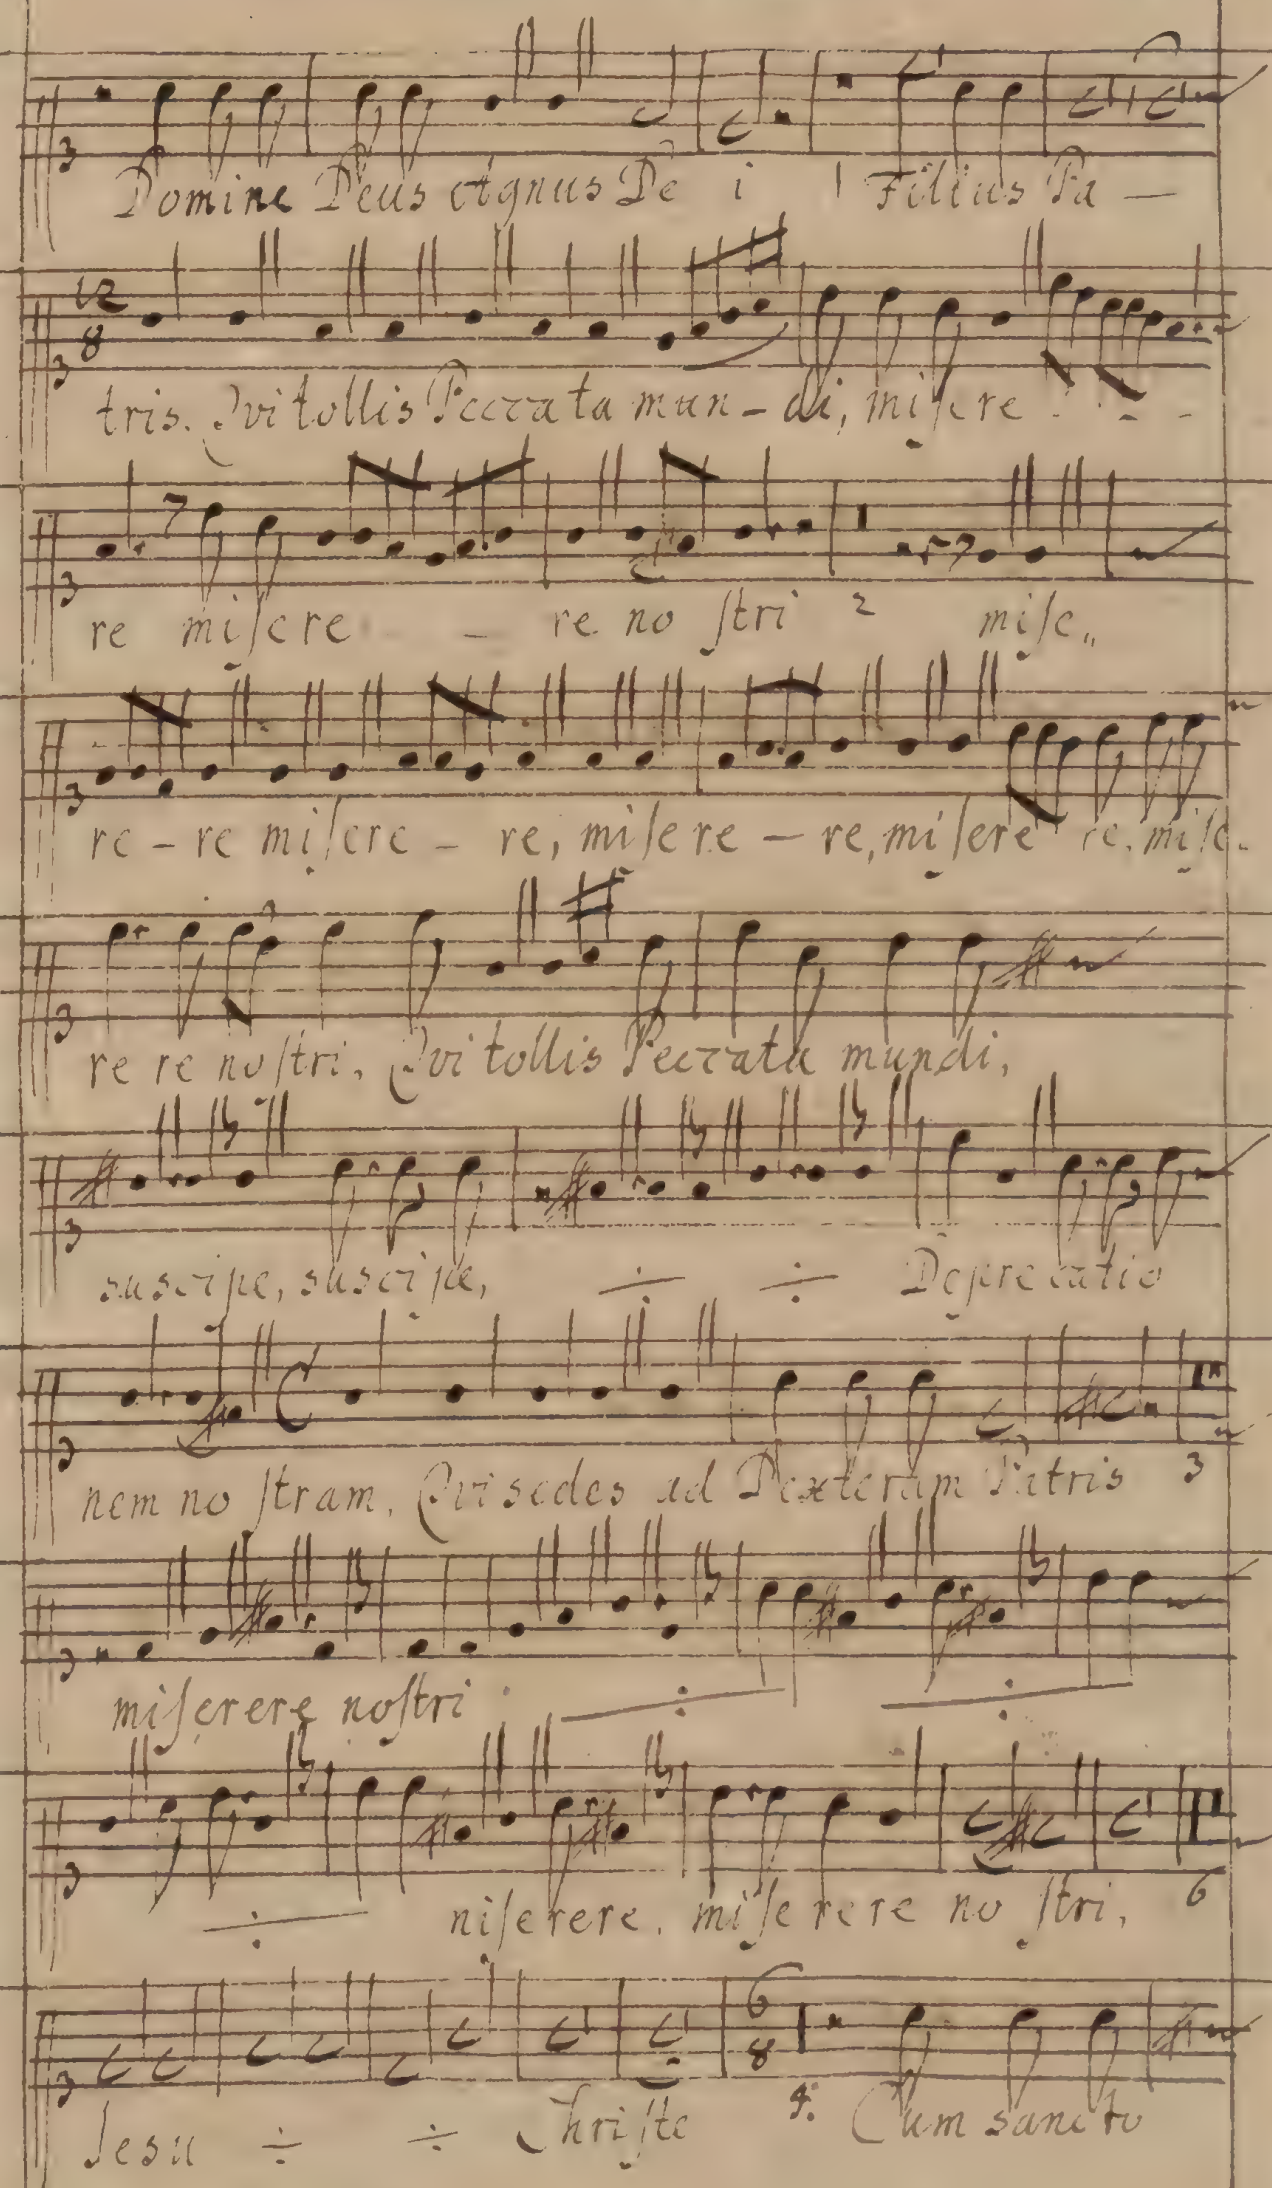 Domine Deus Agnus De i 1 Filius Pa —
tris. Qui tollis Peccata mun - di, miſere - -
re miſere - re no ſtri 2 miſe„
re - re miſere - re, miſere - re, miſere re, miſe.
re re noſtri, Qvi tollis Peccata mundi,
suscipe, suscipe, ÷ ÷ Deprecatio
nem no ſtram. Qvi sedes ad Dexteram Patris 3
miſerere noſtri ÷ ÷
÷ niſerere. miſerere no ſtri, 6
Jesu ÷ ÷ Chriſte 4. Cum sancto